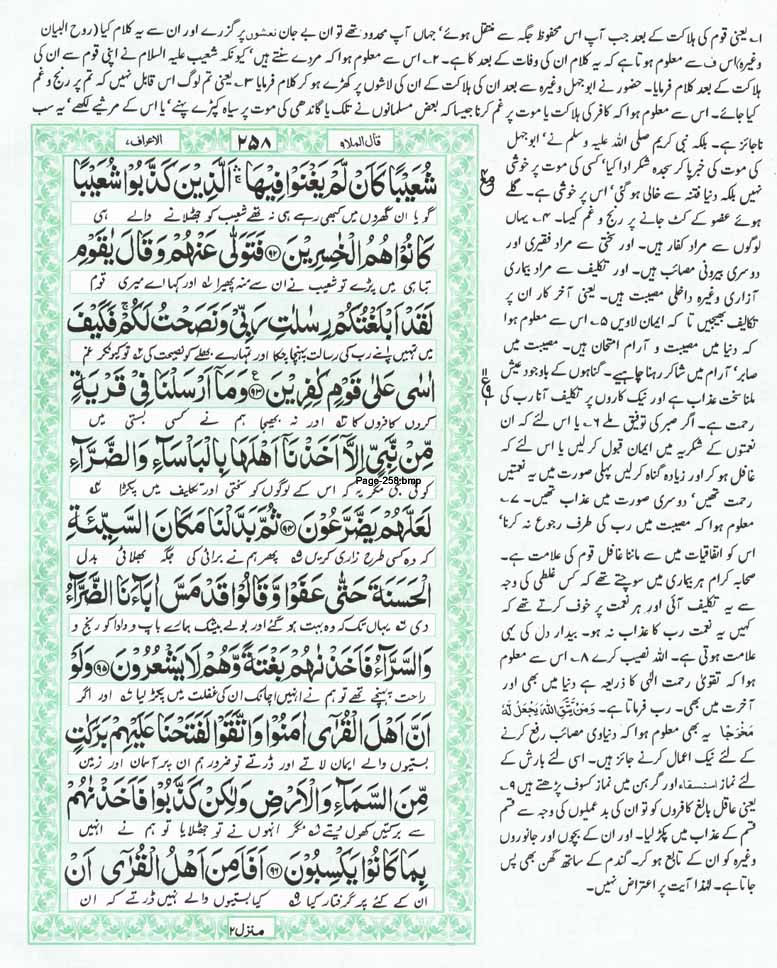 ۱۔ یعنی قوم کی ہلاکت کے بعد جب آپ اس محفوظ جگہ سے منتقل ہوئے‘ جہاں آپ محدود تھے تو ان بے جان نعشوں پر گزرے اور ان سے یہ کلام کیا (روح البیان
وغیرہ) اس ف سے معلوم ہوتا ہے کہ یہ کلام ان کی وفات کے بعد کا ہے۔ ۲۔ اس سے معلوم ہوا کہ مردے سنتے ہیں‘ کیونکہ شعیب علیہ السلام نے اپنی قوم سے ان کی
ہلاکت کے بعد کلام فرمایا۔ حضور نے ابو جہل وغیرہ سے بعد ان کی ہلاکت کے ان کی لاشوں پر کھڑے ہو کر کلام فرمایا ۳۔ یعنی تم لوگ اس قابل نہیں کہ تم پر رنج و غم
کیا جائے۔ اس سے معلوم ہوا کہ کافر کی ہلاکت یا موت پر غم کرنا جیسا کہ بعض مسلمانوں نے تلک یا گاندھی کی موت پر سیاہ کپڑے پہنے‘ یا اس کے مرثیے لکھے‘ یہ سب
ناجائز ہے۔ بلکہ نبی کریم صلی اللہ علیہ وسلم نے‘ ابو جہل
کی موت کی خبر پا کر سجدہ شکر ادا کیا‘ کسی کی موت پر خوشی
نہیں بلکہ دنیا فتنہ سے خالی ہو گئی‘ اس پر خوشی ہے۔ گلے
ہوئے عضو کے کٹ جانے پر رنج و غم کیسا۔ ۴۔ یہاں
لوگوں سے مراد کفار ہیں۔ اور سختی سے مراد فقیری اور
دوسری بیرونی مصائب ہیں۔ اور تکلیف سے مراد بیماری
آزاری وغیرہ داخلی مصیبت ہیں۔ یعنی آخر کار ان پر
تکالیف بھیجیں تا کہ ایمان لاویں ۵۔ اس سے معلوم ہوا
کہ دنیا میں مصیبت و آرام امتحان ہیں۔ مصیبت میں
صابر‘ آرام میں شاکر رہنا چاہیے۔ گناہوں کے باوجود عیش
ملنا سخت عذاب ہے اور نیک کاروں پر تکلیف آنا رب کی
رحمت ہے۔ اگر صبر کی توفیق ملے ۶۔ یا اس لئے کہ ان
نعمتوں کے شکریہ میں ایمان قبول کر لیں یا اس لئے کہ
غافل ہو کر اور زیادہ گناہ کر لیں پہلی صورت میں یہ نعمتیں
رحمت تھیں‘ دوسری صورت میں عذاب تھیں۔ ۷۔
معلوم ہوا کہ مصیبت میں رب کی طرف رجوع نہ کرنا‘
اس کو اتفاقیات میں سے ماننا غافل قوم کی علامت ہے۔
صحابہ کرام ہر بیماری میں سوچتے تھے کہ کس غلطی کی وجہ
سے یہ تکلیف آئی اور ہر نعمت پر خوف کرتے تھے کہ
کہیں یہ نعمت رب کا عذاب نہ ہو۔ بیدار دل کی یہی
علامت ہوتی ہے۔ اللہ نصیب کرے ۸۔ اس سے معلوم
ہوا کہ تقویٰ رحمت الٰہی کا ذریعہ ہے دنیا میں بھی اور
آخرت میں بھی۔ رب فرماتا ہے۔ وَمَنْ يَّتَّقِ اللّٰهَ يَجْعَلْ لَّهٗ
مَخْرَجًا یہ بھی معلوم ہوا کہ دنیاوی مصائب رفع کرنے
کے لئے نیک اعمال کرنے جائز ہیں۔ اسی لئے بارش کے
لئے نماز استسقاء اور گرہن میں نماز کسوف پڑھتے ہیں ۹۔
یعنی عاقل بالغ کافروں کو تو ان کی بد عملیوں کی وجہ سے قسم
قسم کے عذاب میں پکڑ لیا۔ اور ان کے بچوں اور جانوروں
وغیرہ کو ان کے تابع ہو کر۔ گندم کے ساتھ گھن بھی پس
جاتا ہے۔ لہٰذا آیت پر اعتراض نہیں۔
قال الملا۹
۲۵۸
الاعراف۷
شُعَيْبًا كَاَنْ لَّمْ يَغْنَوْا فِيْهَا ۚ اَلَّذِيْنَ كَذَّبُوْا شُعَيْبًا
گویا ان گھروں میں کبھی رہے ہی نہ تھے شعیب کو جھٹلانے والے ہی
كَانُوْا هُمُ الْخٰسِرِيْنَ ۹۲ فَتَوَلّٰى عَنْهُمْ وَقَالَ يٰقَوْمِ
تباہی میں پڑے تو شعیب نے ان سے منہ پھیرا اور کہا اے میری قوم
لَقَدْ اَبْلَغْتُكُمْ رِسٰلٰتِ رَبِّيْ وَنَصَحْتُ لَكُمْ ۚ فَكَيْفَ
میں تمہیں اپنے رب کی رسالت پہنچا چکا اور تمہارے بھلے کو نصیحت کی تو کیونکر غم
اٰسٰى عَلٰى قَوْمٍ كٰفِرِيْنَ ۹۳ وَمَآ اَرْسَلْنَا فِيْ قَرْيَةٍ
کروں کافروں کا اور نہ بھیجا ہم نے کسی بستی میں
مِّنْ نَّبِيٍّ اِلَّآ اَخَذْنَآ اَهْلَهَا بِالْبَاْسَآءِ وَالضَّرَّآءِ
Page-258.bmp
کوئی نبی مگر یہ کہ اس کے لوگوں کو سختی اور تکلیف میں پکڑا
لَعَلَّهُمْ يَضَّرَّعُوْنَ ۹۴ ثُمَّ بَدَّلْنَا مَكَانَ السَّيِّئَةِ
کہ وہ کسی طرح زاری کریں پھر ہم نے برائی کی جگہ بھلائی بدل
الْحَسَنَةَ حَتّٰى عَفَوْا وَّقَالُوْا قَدْ مَسَّ اٰبَآءَنَا الضَّرَّآءُ
دی یہاں تک کہ وہ بہت ہو گئے اور بولے بیشک ہمارے باپ دادا کو رنج و
وَالسَّرَّآءُ فَاَخَذْنٰهُمْ بَغْتَةً وَّهُمْ لَا يَشْعُرُوْنَ ۹۵ وَلَوْ
راحت پہنچے تھے تو ہم نے انہیں اچانک ان کی غفلت میں پکڑ لیا اور اگر
اَنَّ اَهْلَ الْقُرٰٓى اٰمَنُوْا وَاتَّقَوْا لَفَتَحْنَا عَلَيْهِمْ بَرَكٰتٍ
بستیوں والے ایمان لاتے اور ڈرتے تو ضرور ہم ان پر آسمان اور زمین
مِّنَ السَّمَآءِ وَالْاَرْضِ وَلٰكِنْ كَذَّبُوْا فَاَخَذْنٰهُمْ
سے برکتیں کھول دیتے مگر انہوں نے تو جھٹلایا تو ہم نے انہیں
بِمَا كَانُوْا يَكْسِبُوْنَ ۹۶ اَفَاَمِنَ اَهْلُ الْقُرٰٓى اَنْ
ان کے کئے پر گرفتار کیا کیا بستیوں والے نہیں ڈرتے کہ ان
منزل ۲